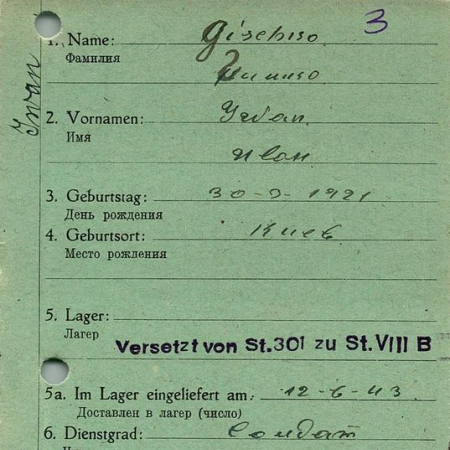 3
1. Name: Gischso.
Фамилия
Iwan
2. Vornamen: Ivan.
Имя
Иван
3. Geburtstag: 30-9-1921
День рождения
4. Geburtsort: Киев
Место рождения
5. Lager:
Лагер
Versetzt von St.301 zu St.VIII B
5a. Im Lager eingeliefert am: 12-6-43.
Доставлен в лагер (число)
6. Dienstgrad: Солдат